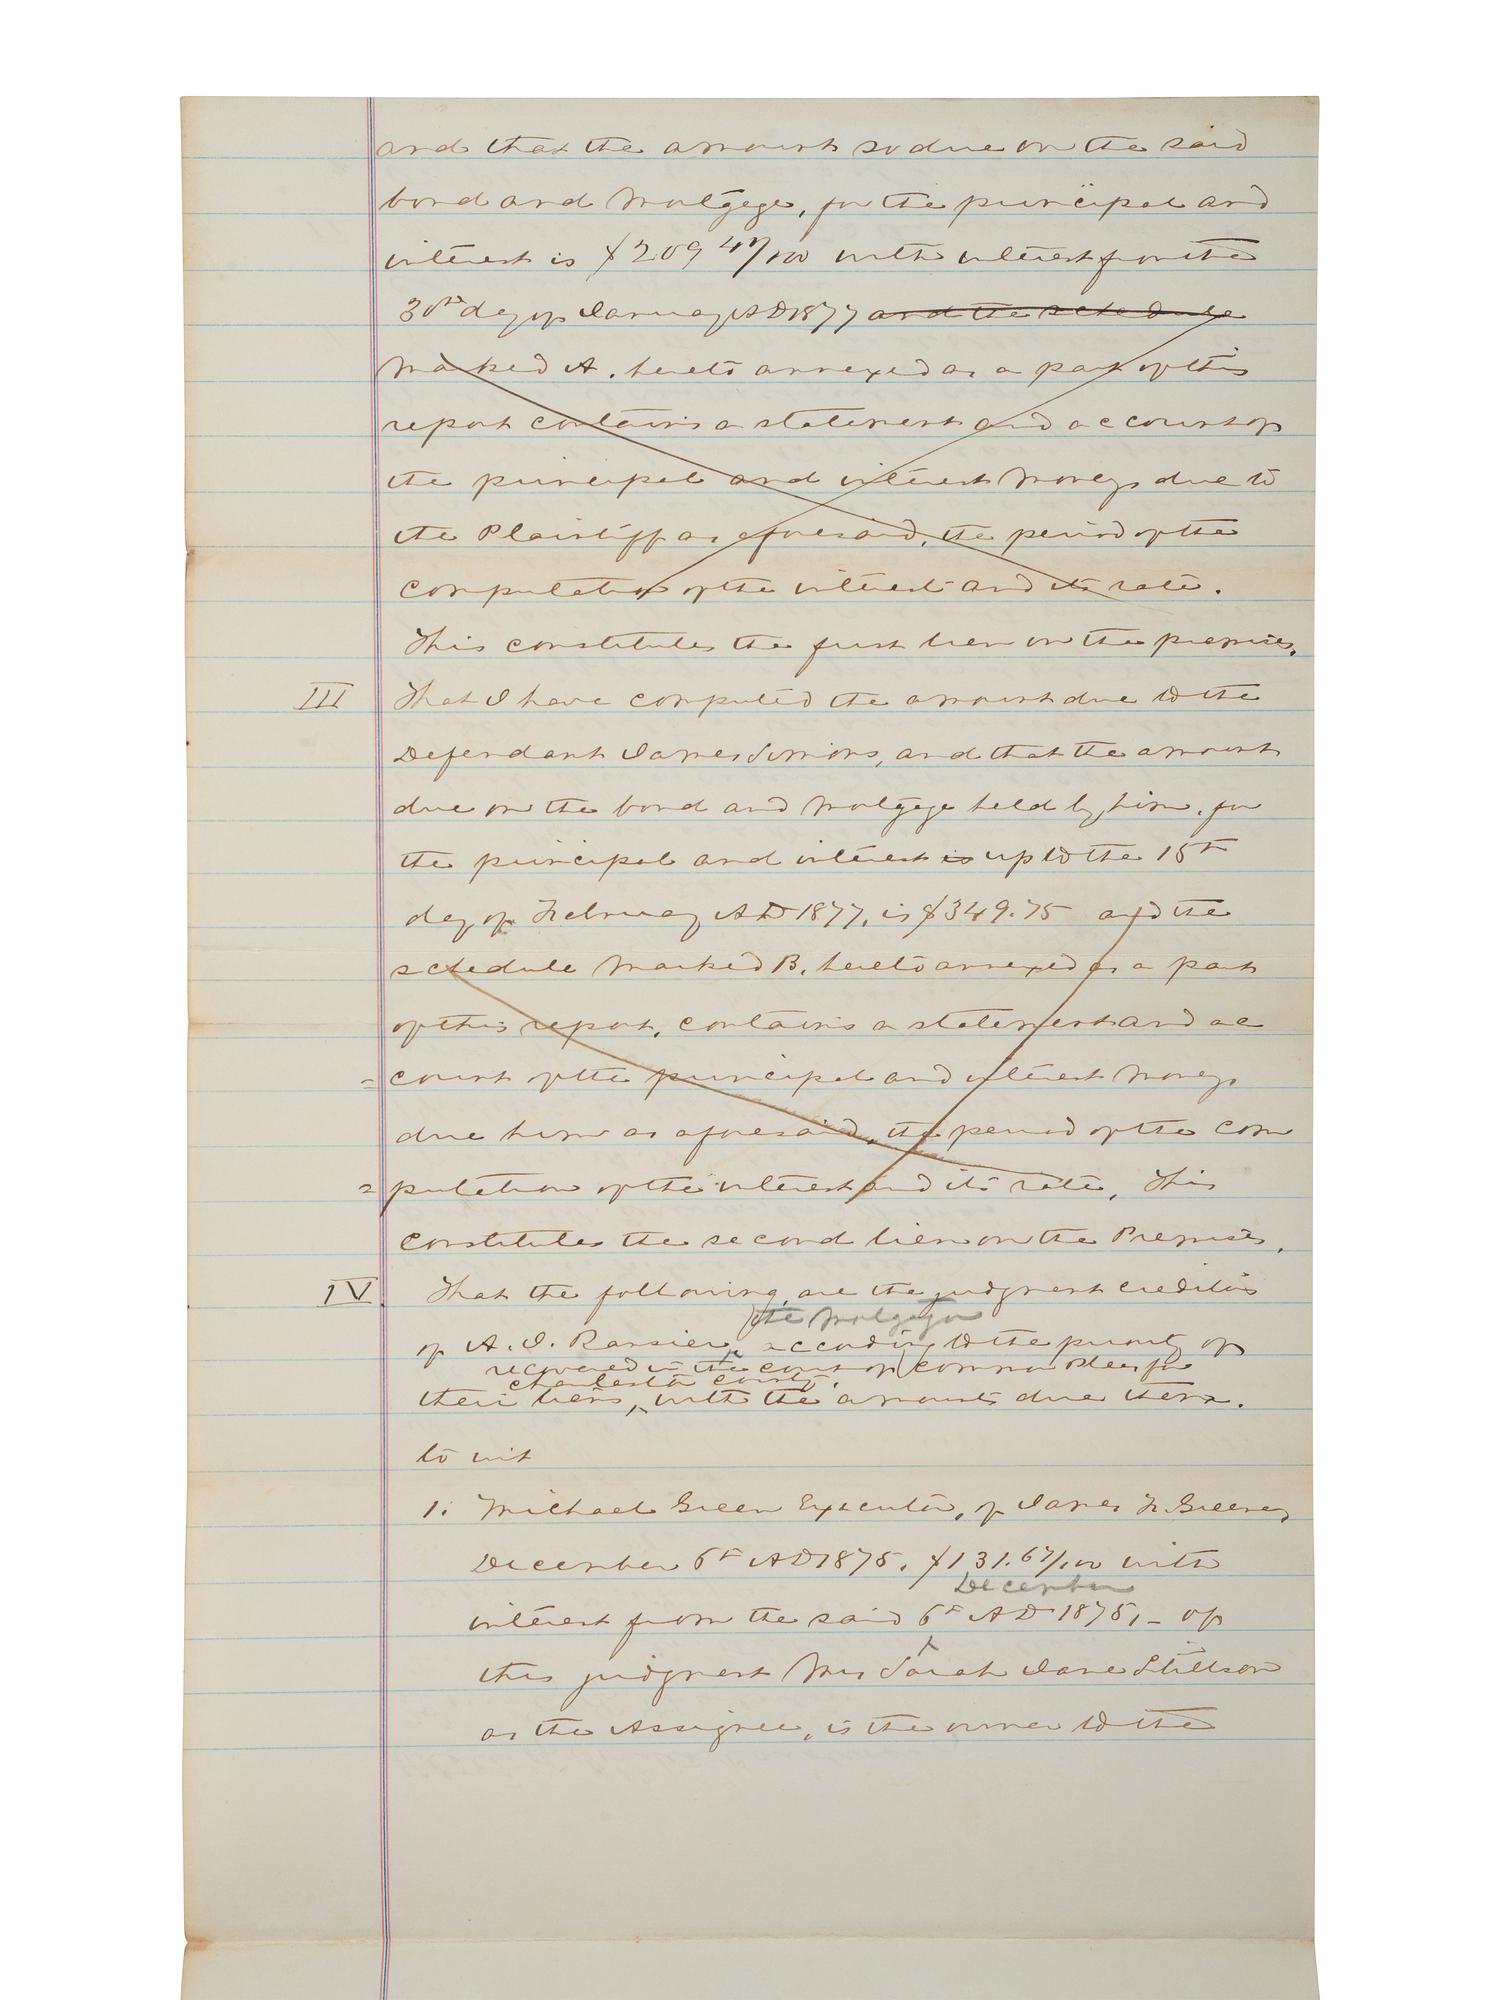 and that the amount so due on the said
bond and Mortgage, for the principal and
interest is $209 47/100 with interest from the
30th day of January AD 1877 and the schedule
marked A. hereto annexed as a part of this
report contains a statement and account of
the principal and interest moneys due to
the Plaintiff as aforesaid, the period of the
computation of the interest and its rate.
This constitutes the first lien on the premises.
III That I have computed the amount due to the
Defendant James Simons, and that the amount
due on the bond and Mortgage held by him, for
the principal and interest is up to the 15th
day of February AD 1877, is $349.75 and the
schedule marked B, hereto annexed as a part
of this report, contains a statement and ac
=count of the principal and interest moneys
due him as aforesaid, the period of the com
=putation of the interest and its rate, This
constitutes the second lien on the Premises.
IV. That the following, are the judgment creditors
the Mortgagor
of A. I. according to the priority of
recovered in the court of Common Pleas for
Charleston County,
their liens, with the amounts due them.
to wit
1. Michael Green Executor, of James Greene,
December 6th AD 1875, $131.67/100 with
December
interest from the said 6th AD 1875, - of
this judgment Mrs Sarah Jane Stillson
as the Assignee, is the owner to the